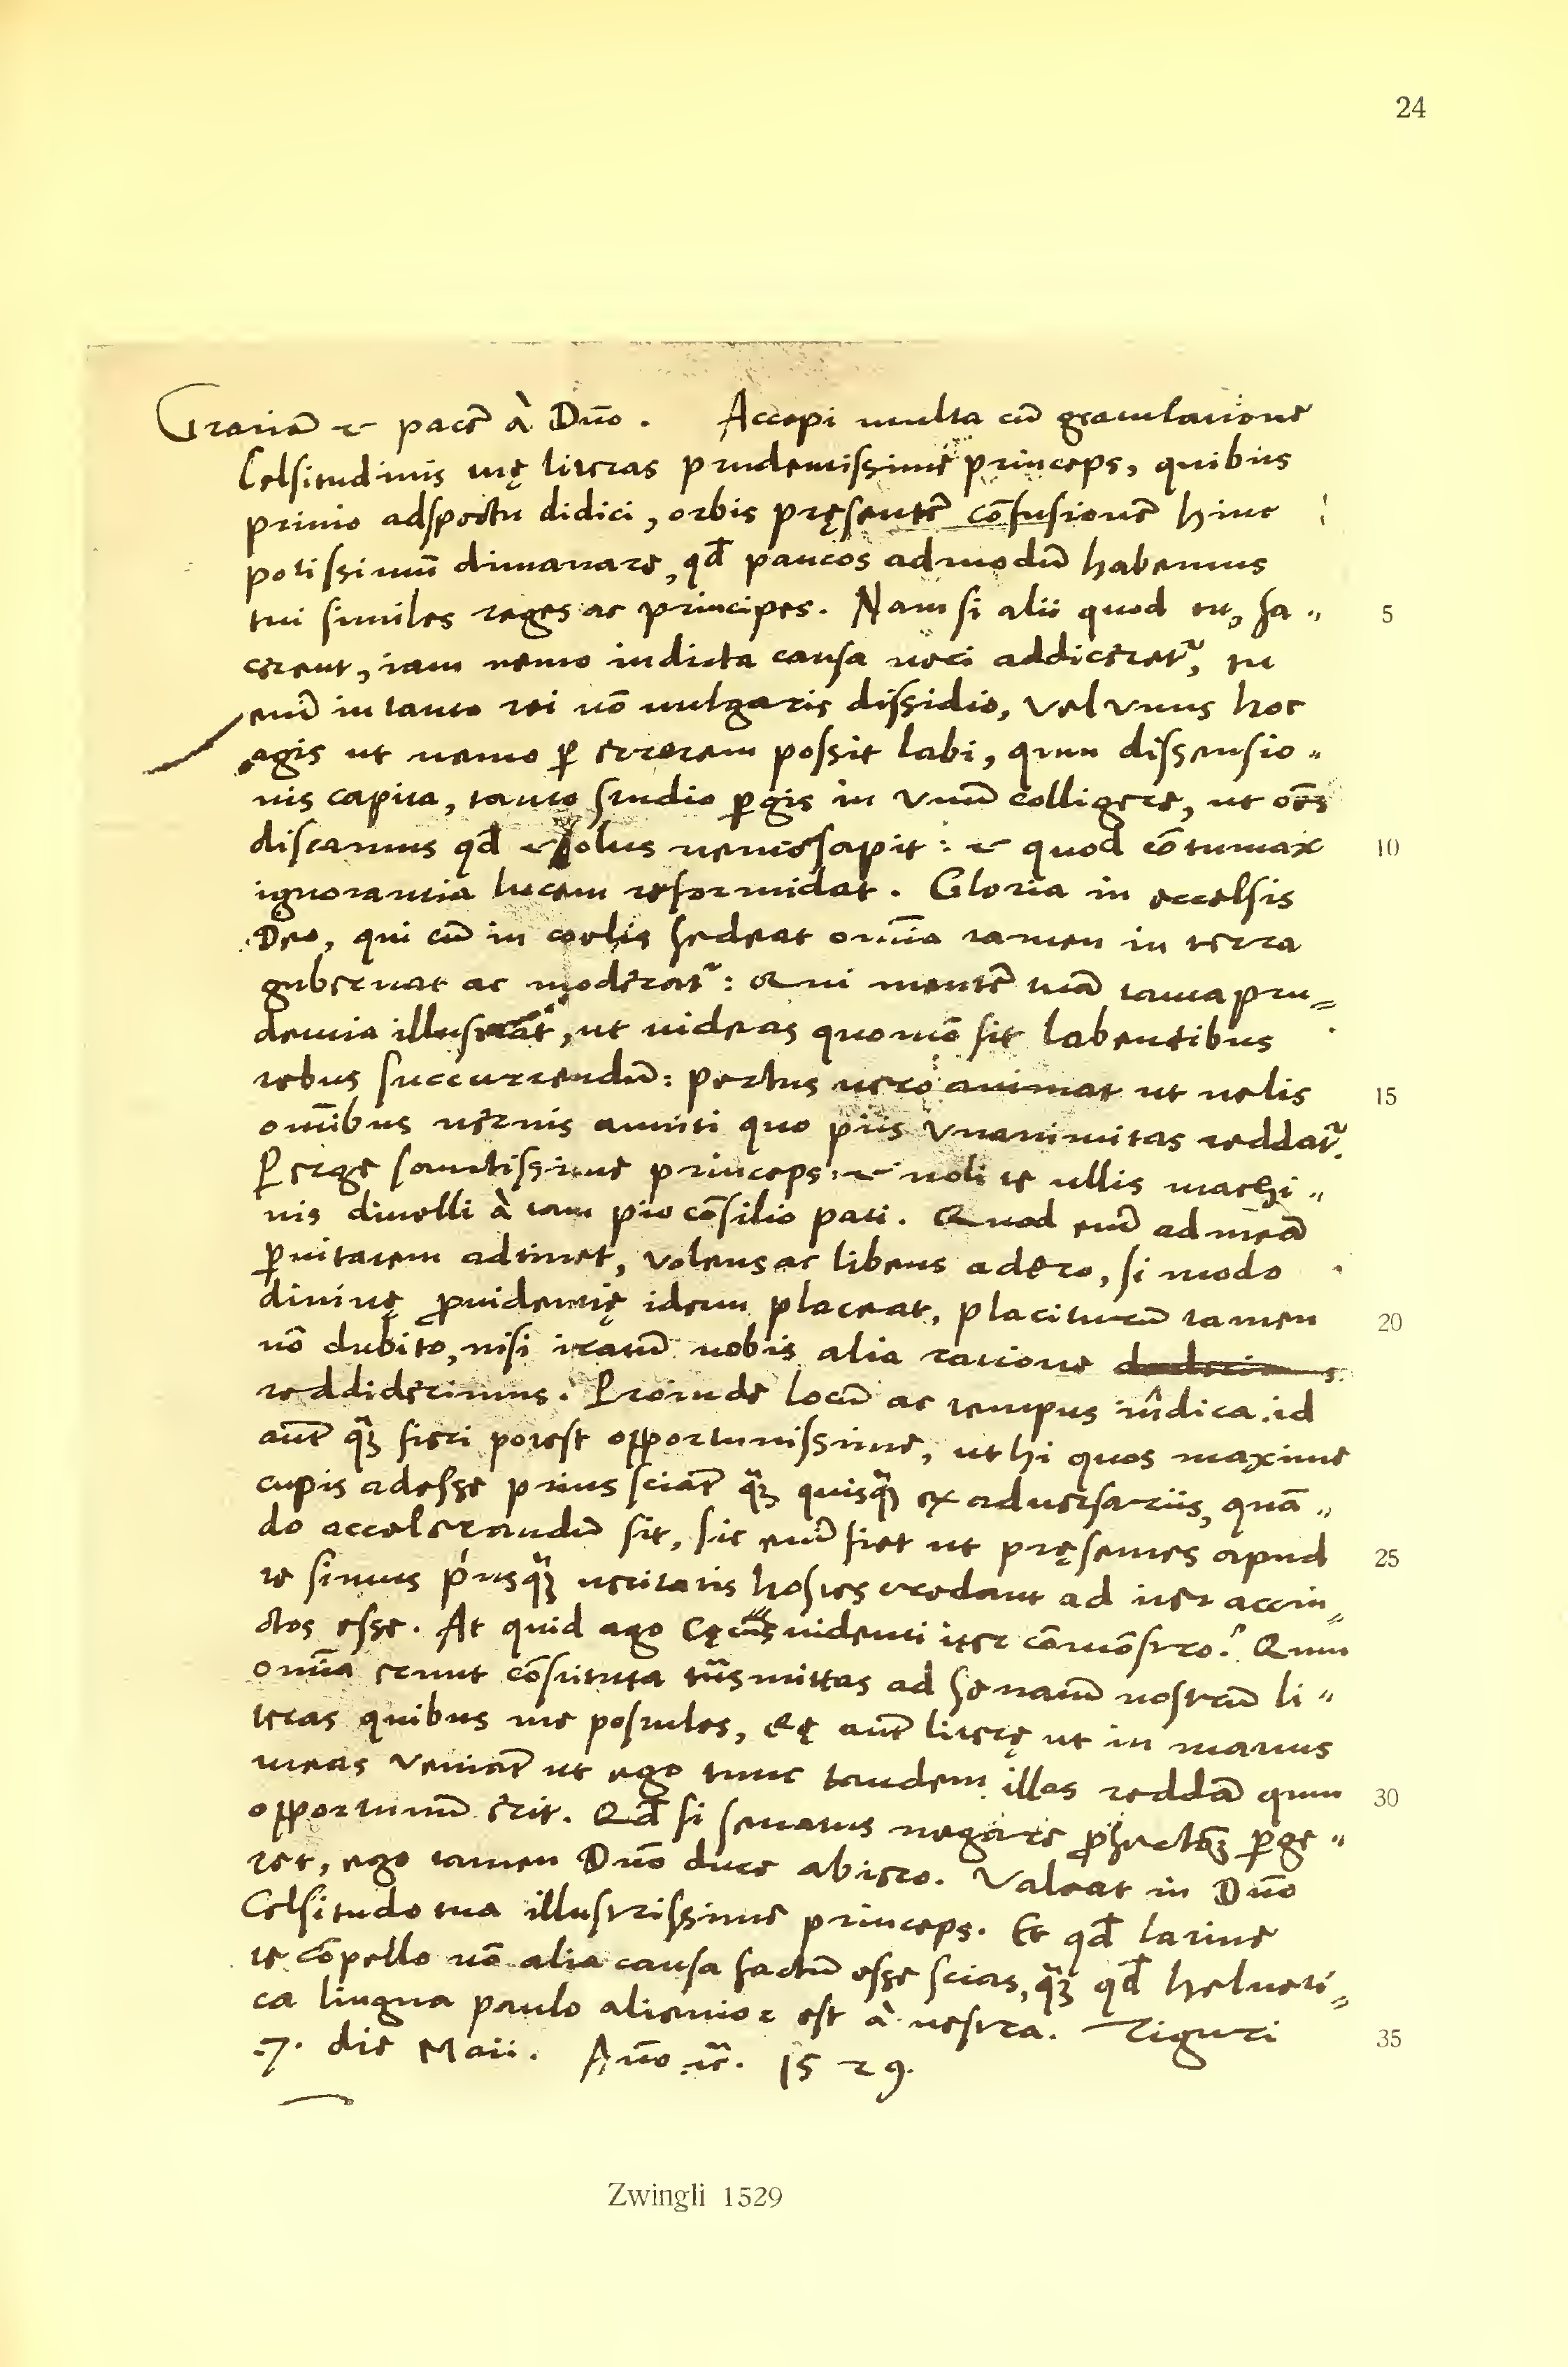 24
Gratiã et pacẽ à Dño. Accepi multa cũ gratulatione
Celsitudinis tuę literas prudentissime princeps, quibus
primo adspectu didici, orbis pręsentẽ cõfusionẽ hinc
potissimũ dimanare, qđ paucos admodũ habemus
tui similes reges ac principes. Nam si alii quod tu, fa„ 5
cerent, iam nemo indicta causa neci addiceretᷣ, tu
enĩ in tanto rei nõ vulgaris dissidio, vel vnus hoc
agis ut nemo ꝑ errorem possit labi, quum dissensio„
nis capita, tanto studio ꝑgis in vnũ colligere, ut oẽs
discamus qđ et solus nemo sapit: et quod cõtumax 10
ignorantia lucem reformidat. Gloria in eccelsis
Deo, qui cũ in coelis sedeat omĩa tamen in terra
gubernat ac moderatᷣ: Qui mentẽ tuã tanta pru=
dentia illustrat, ut uideas quomõ sit labentibus
rebus succurrendũ: pectus uero animat ut uelis 15
omĩbus neruis anniti quo piis vnanimitas reddatᷣ.
Perge sanctissime princeps: et noli te ullis machi„
nis diuelli à tam pio cõsilio pati. Quod enĩ ad meã
ꝑuitatem adtinet, volens ac libens adero, si modo
diuinę ꝓuidentię idem placeat, placiturũ tamen 20
nõ dubito, nisi iratũ nobis alia ratione
reddiderimus. Proinde locũ ac tempus indica. id
autẽ qᷓꝫ fieri potest opportunissime, ut hi quos maxime
cupis adesse prius sciãt qᷓꝫ quisqᷓꝫ ex aduersariis, quã„
do accelerandũ sit, sic enĩ fiet ut pręsentes apud 25
te simus priusqᷓꝫ ueritatis hostes credant ad iter accin=
ctos esse. At quid ago cęcus uidenti iter cõmõstro? Quum
omĩa erunt cõstituta trãsmittas ad Senatũ nostrũ li„
teras quibus me postules, Eę autẽ literę ut in manus
meas veniãt ut ego tunc tandem illas reddã quum 30
opportunũ erit. Qđ si senatus negare ꝓfectionẽ ꝑge„
ret, ego tamen Dño duce abiero. Valeat in Dño
Celsitudo tua illustrissime princeps. Et qđ latine
te cõpello nõ alia causa factũ esse scias, qᷓꝫ qđ helueti=
ca lingua paulo alienior est à uestra. Tiguri 35
.7. die Maii. Año ꝛc̃. 1529.
Zwingli 1529